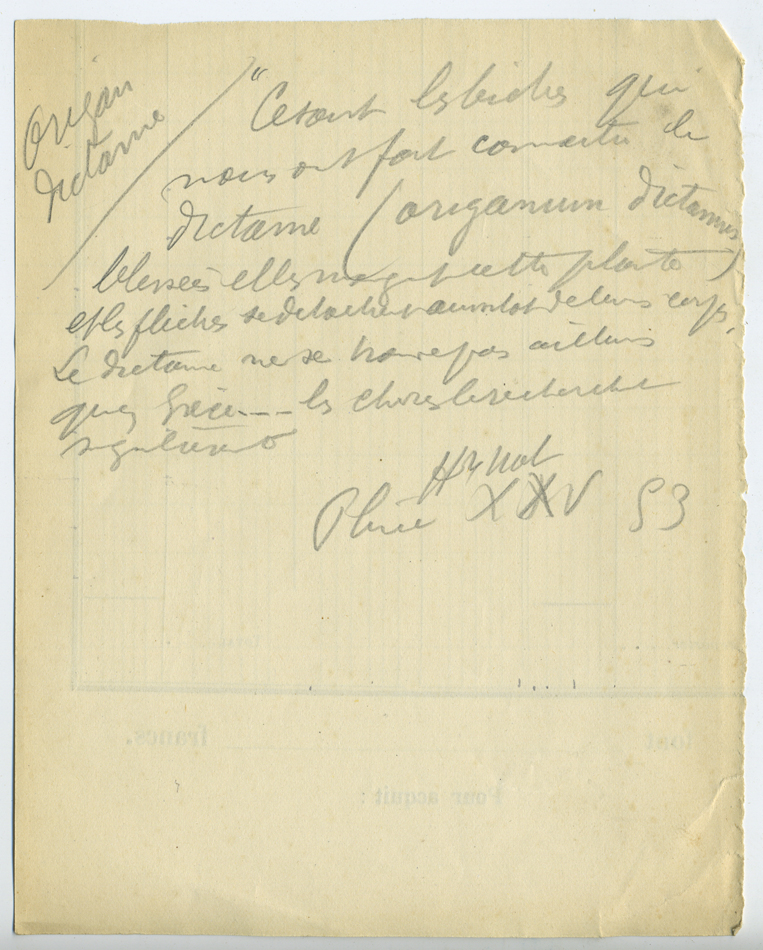 Origan
dictame
"Ce sont les biches qui
nous ont fait connaitre le
dictame (origanum dictamus)
blessées elles mangent cette plante
et les fleches se détachent aussitot de leurs corps.
Le dictame ne se trouve pas ailleurs
qu'en Grèce --- les chèvres le recherche
H N nat
Pline XXV 53
francs.
Pour acquit :